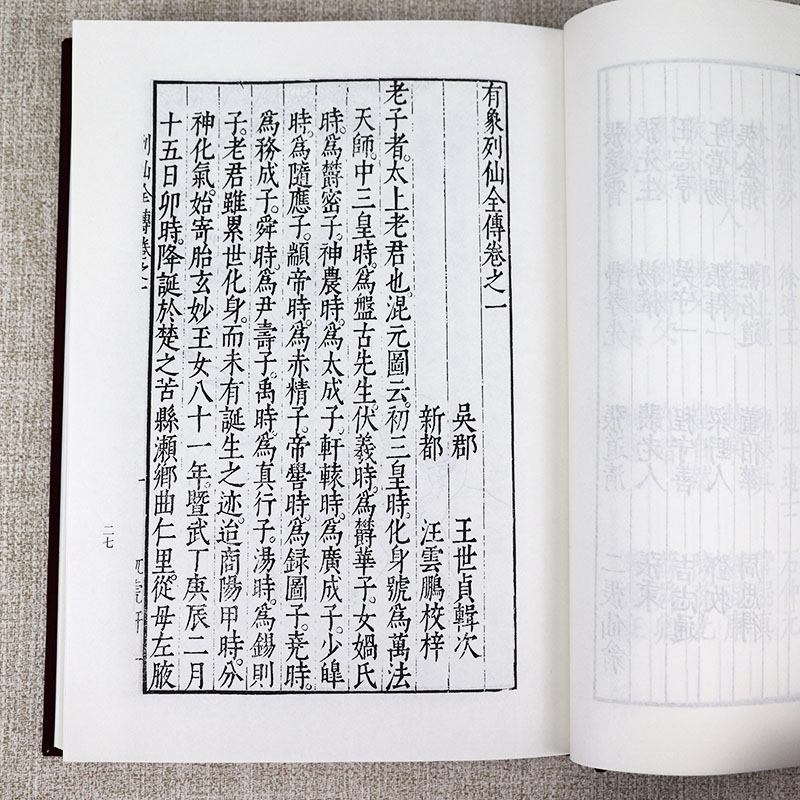 有象列仙全傳卷之一
吳郡 王世貞輯次
新都 汪雲鵬校梓
老子者。太上老君也。混元圖云。初三皇時。化身號爲萬法
天師。中三皇時。爲盤古先生。伏羲時。爲欝華子。女媧氏
時。爲欝密子。神農時。爲太成子。軒轅時。爲廣成子。少皥
時。爲隨應子。顓帝時。爲赤精子。帝嚳時。爲録圖子。堯時。
爲務成子。舜時。爲尹壽子。禹時。爲真行子。湯時。爲錫則
子。老君雖累世化身。而未有誕生之迹。迨商陽甲時。分
神化氣。始寄胎玄妙王女八十一年。暨武丁庚辰二月
十五日卯時。降誕於楚之苦縣瀬鄉曲仁里。從母左腋
列仙全傳卷之一
一
二七